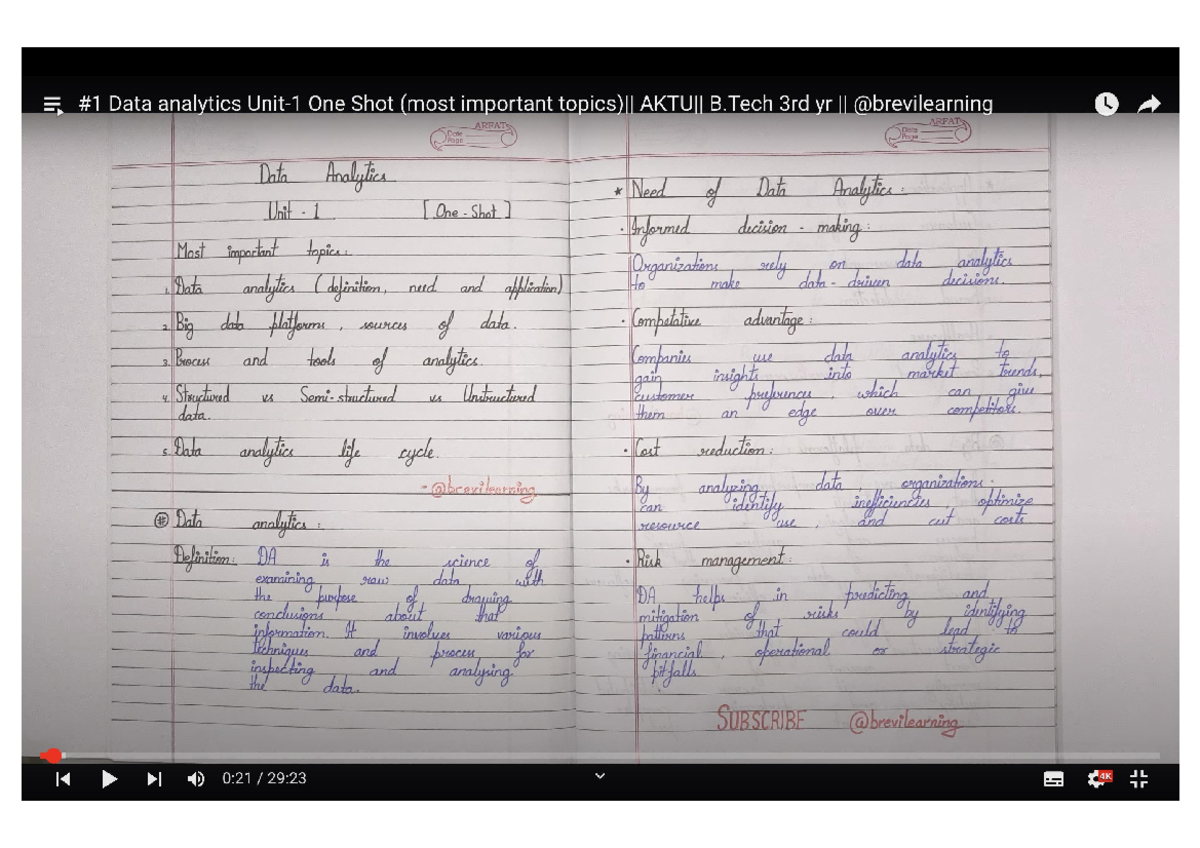 #1 Data analytics Unit-1 One Shot (most important topics)|| AKTU|| B.Tech 3rd yr || @brevilearning
ARFAT
Date
Page
Data Analytics
Unit - 1 [One-Shot]
Most important topics:
1. Data analytics (definition, need and application)
2. Big data platforms, sources of data.
3. Process and tools of analytics.
4. Structured vs Semi-structured vs Unstructured
data.
5. Data analytics life cycle.
- @brevilearning
# Data analytics:
Definition: DA is the science of
examining raw data with
the purpose of drawing
conclusions about that
information. It involves various
techniques and process for
inspecting and analysing
the data.
ARFAT
Date
Page
* Need of Data Analytics:
· Informed decision - making:
Organizations rely on data analytics
to make data-driven decisions.
· Competative advantage:
Companies use data analytics to
gain insights into market trends,
customer preferences, which can give
them an edge over competitors.
· Cost reduction:
By analyzing data, organizations
can identify inefficiencies, optimize
resource use, and cut costs
· Risk management:
DA helps in predicting and
mitigation of risks by identifying
patterns that could lead to
financial, operational or strategic
pitfalls.
SUBSCRIBE @brevilearning
0:21 / 29:23
4K